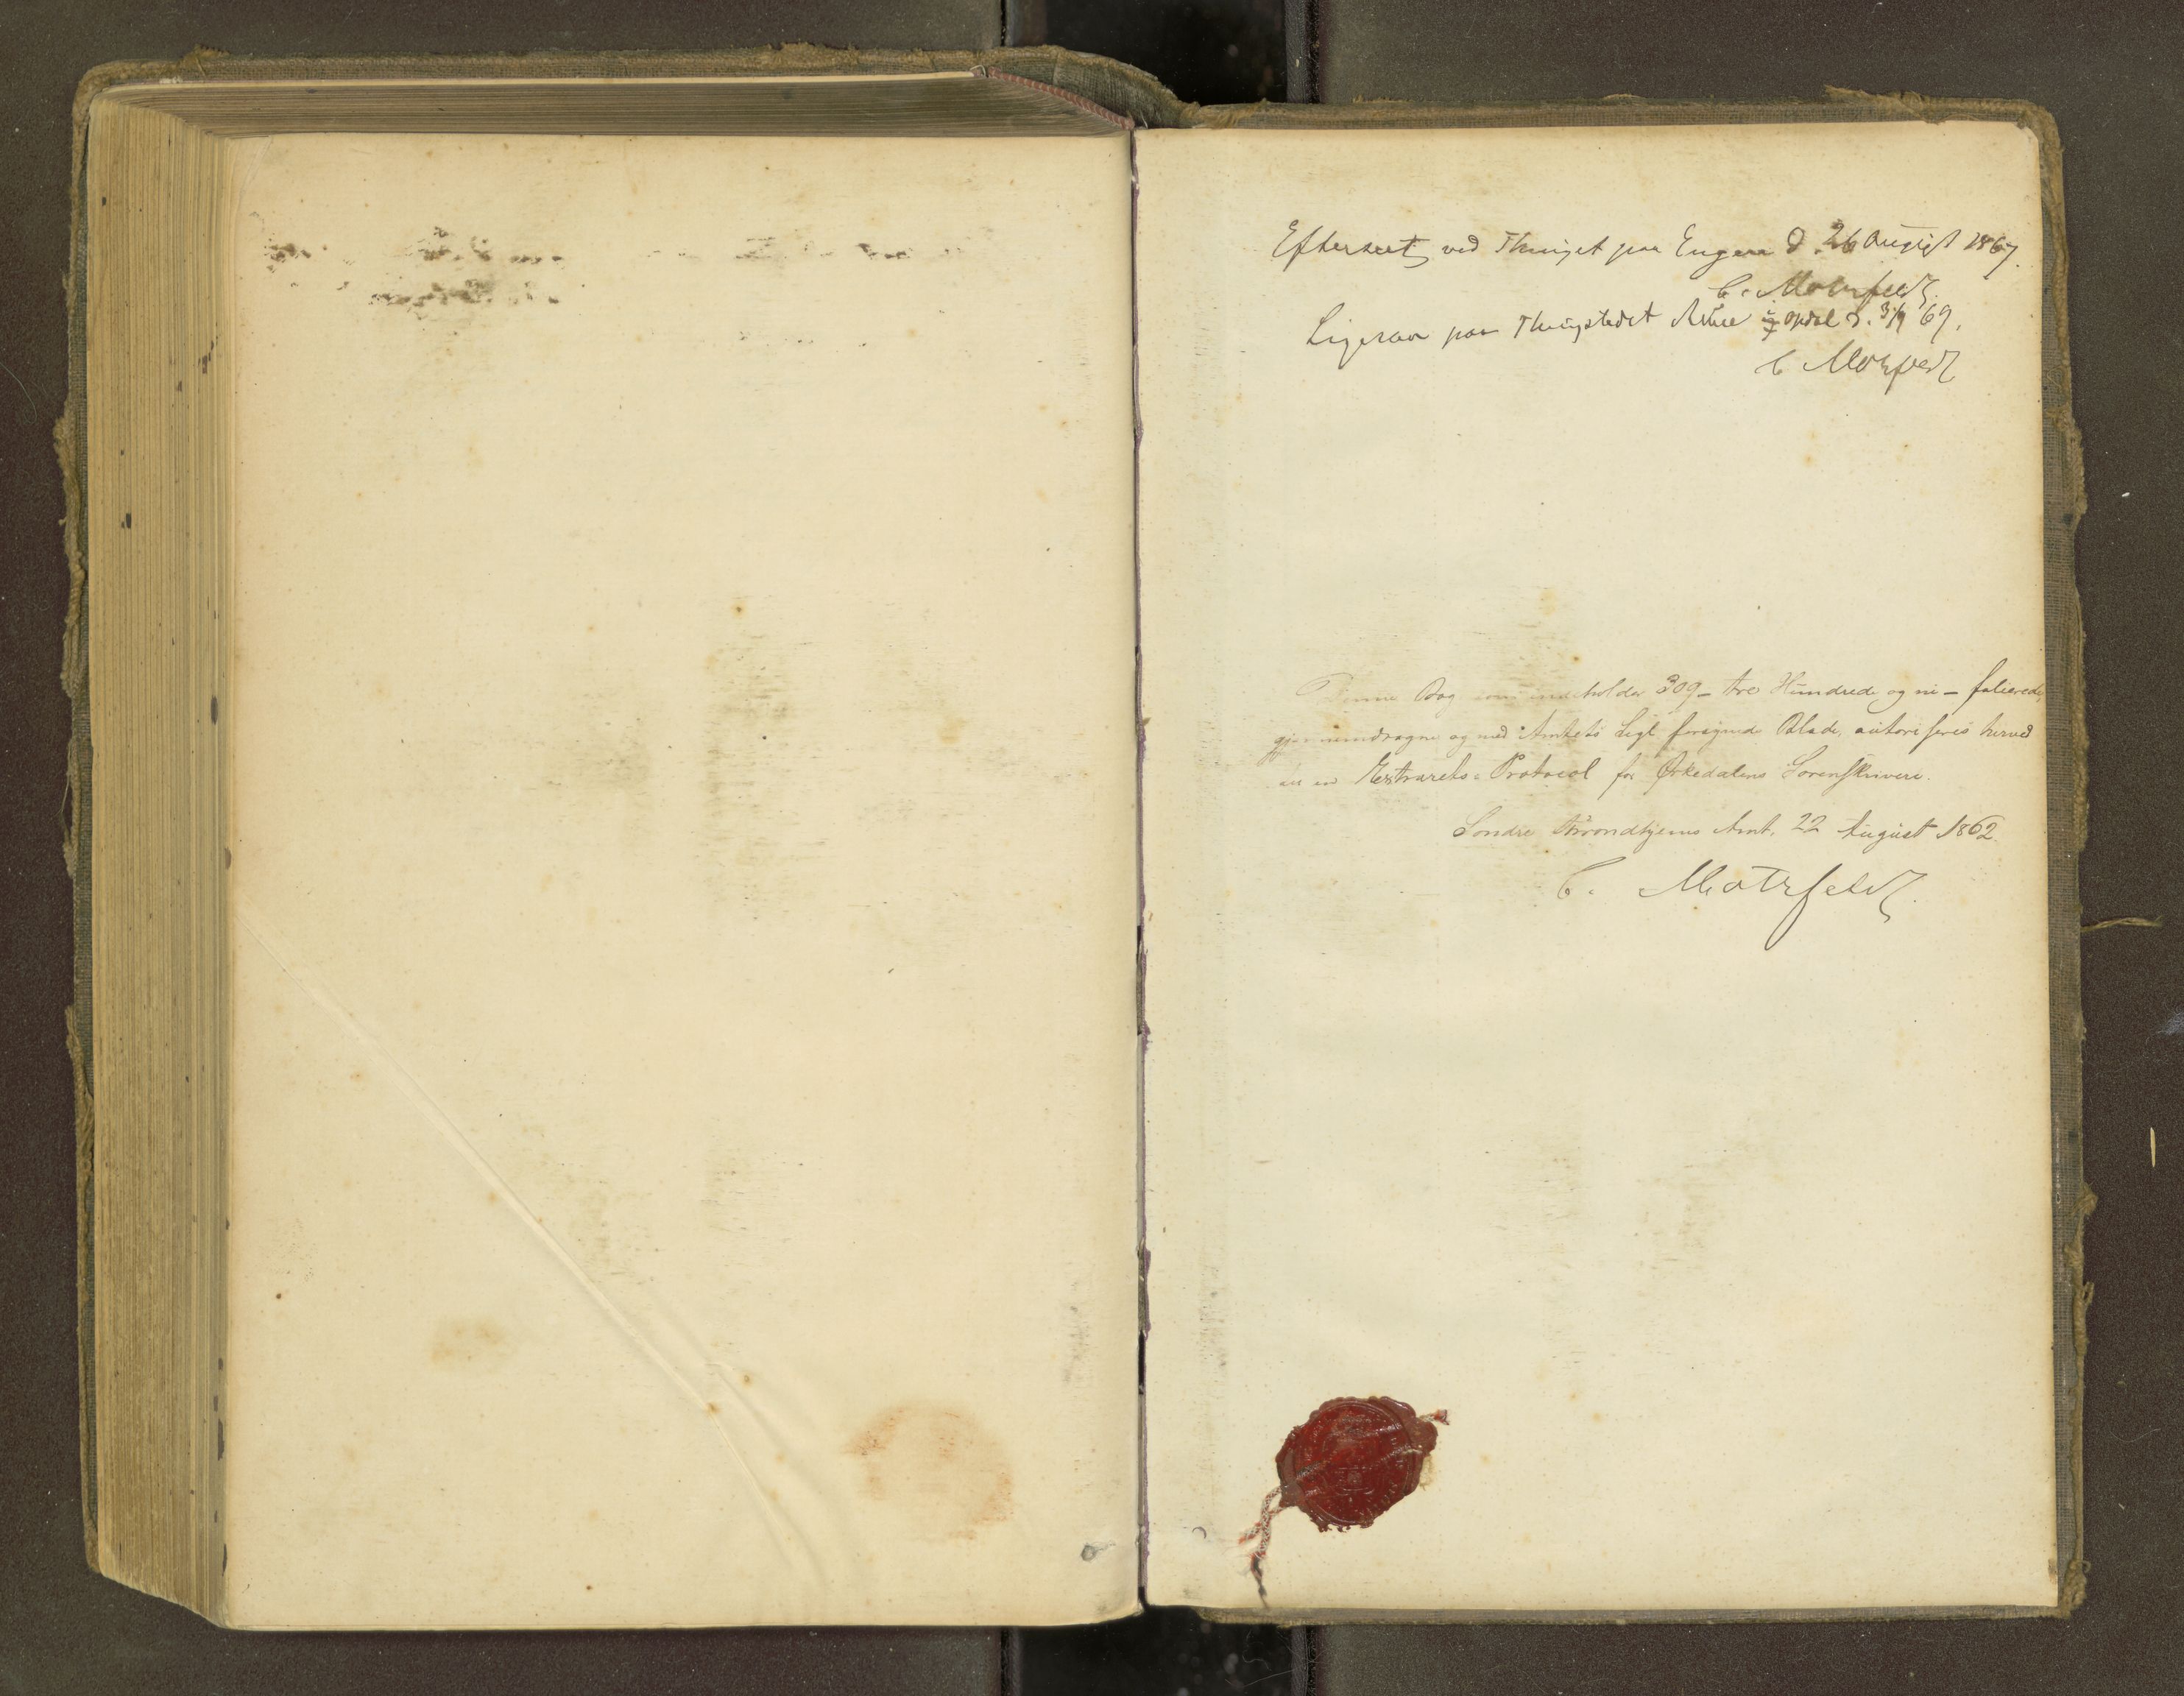 Efterseet ved Thinget paa Engen d. 26 August 1867.
C. Motzfeldt
Ligesaa paa Thingstedet i Opdal d. 3/9 69.
C Motzfeldt
Denne Bog som indeholder 309 - tre Hundrede og ni - folierede,
gjennemdragne og med Amtets Segl forsynede Blade, autoriseres herved
til en Extrarets-Protocol for Ørkedalens Sorenskriveri.
Søndre Throndhjems Amt, 22 August 1862.
C. Motzfeldt.